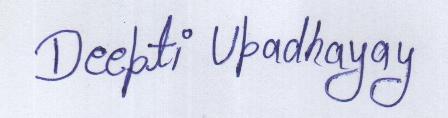 Deepti Upadhayay